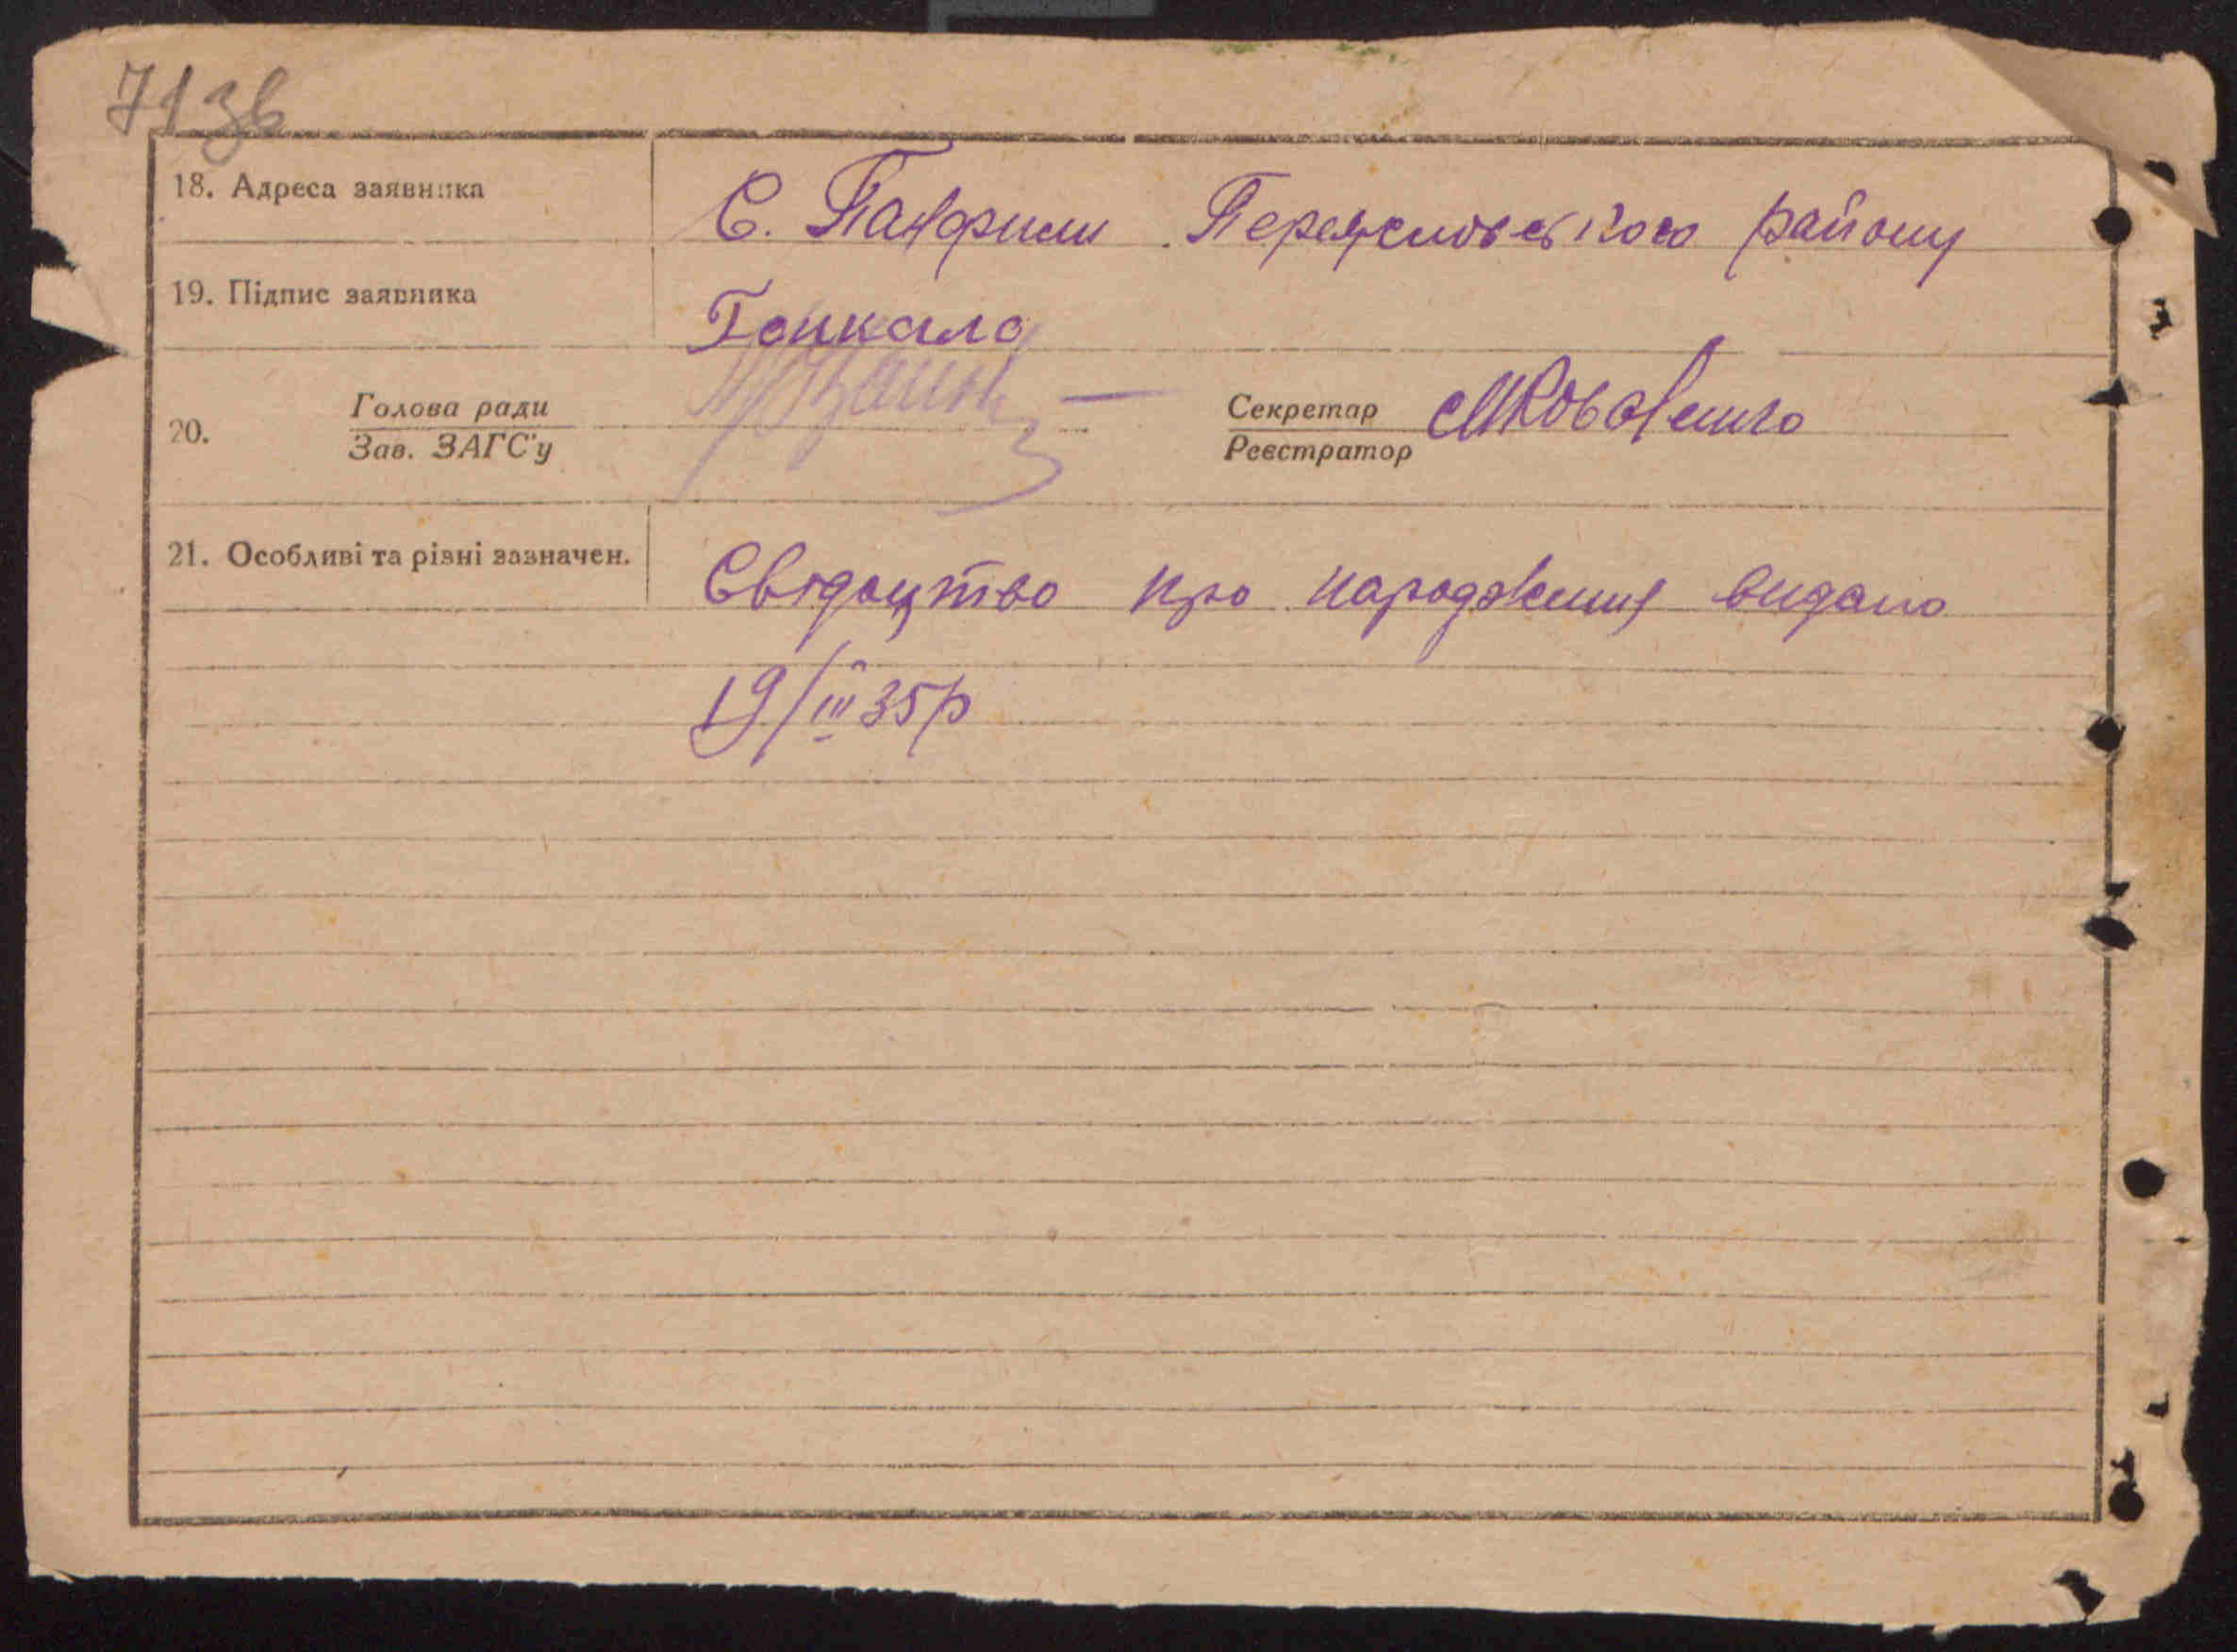 71зв
18. Адреса заявника С. Панфили Переяславського району
19. Підпис заявника Гонкало
20. Голова ради Секретар МКоваленко
Зав. ЗАГС'у Реєстратор
21. Особливі та різні зазначен. Свідоцтво про народження видано
19/III 35р